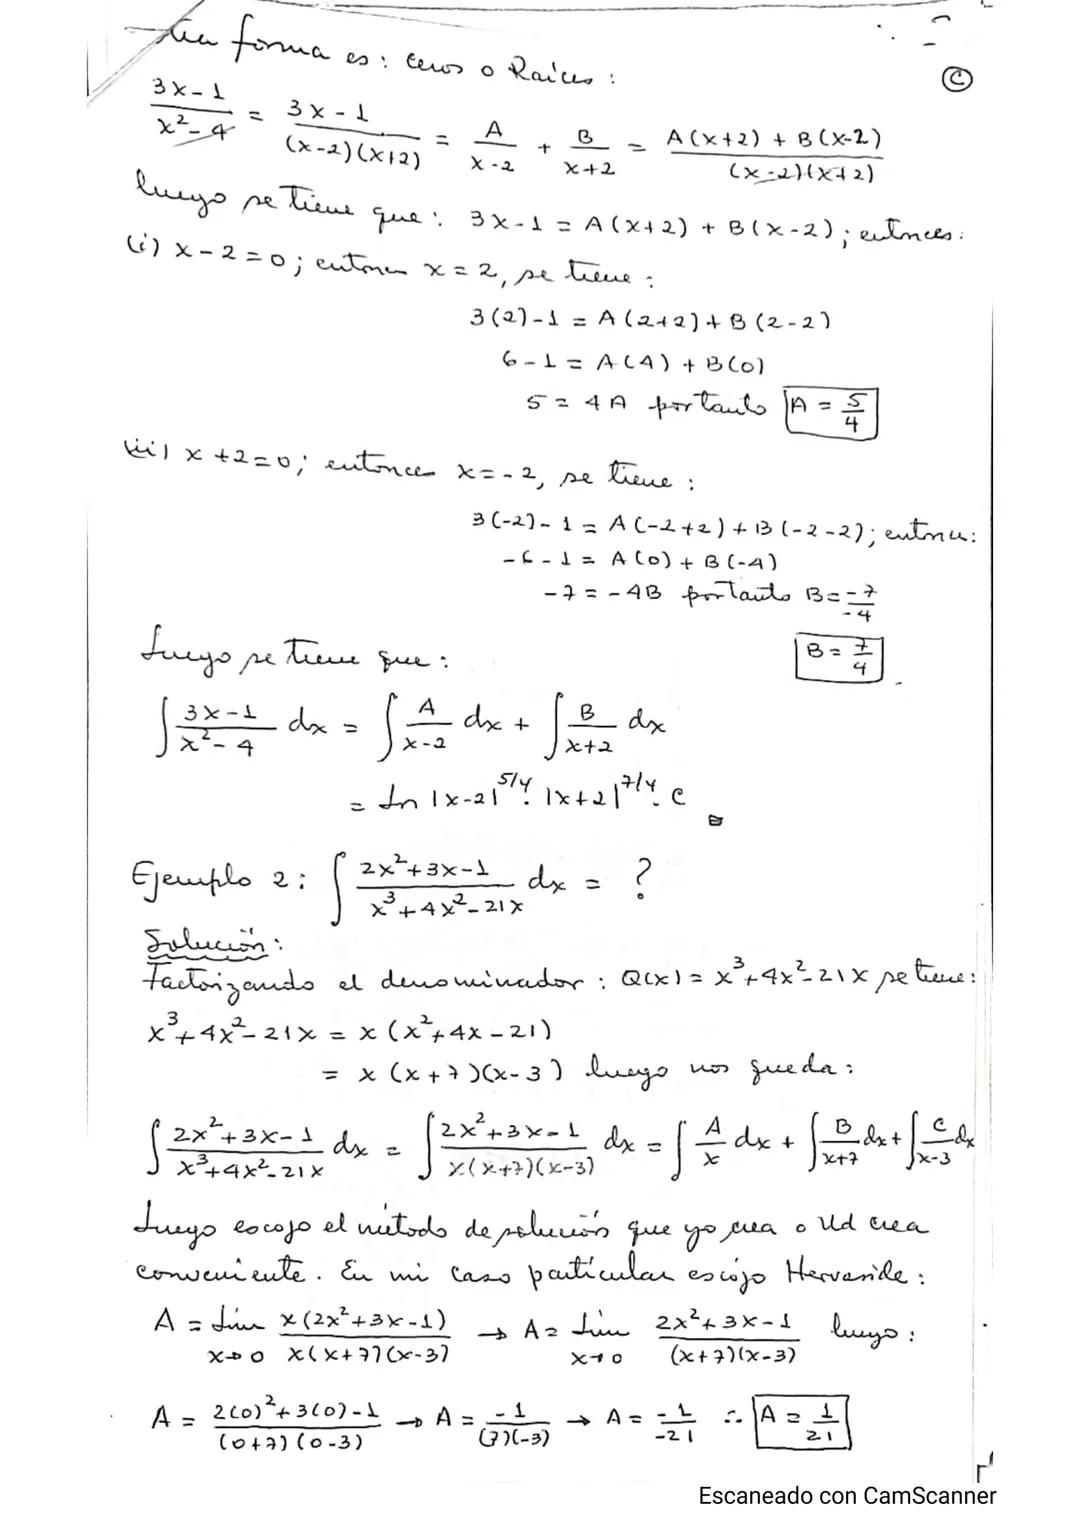 forma es: ceros o Raíces:
Ⓒ
3x-1/x²-4 = 3x-1/(x-2)(x+2) = A/x-2 + B/x+2 = A(x+2) + B(x-2)/(x-2)(x+2)
luego se tiene que: 3x-1 = A(x+2) + B(x-2); entonces:
(i) x-2=0; entonces x=2, se tiene:
3(2)-1 = A(2+2)+B(2-2)
6-1 = A(4) + B(0)
5 = 4A portanto A = 5/4
(ii) x+2=0; entonces x=-2, se tiene:
3(-2)-1 = A(-2+2)+B(-2-2); entonces:
-6-1 = A(0) + B(-4)
-7 = -4B portanto B = -7/-4
Luego se tiene que: B = 7/4
∫ 3x-1/x²-4 dx = ∫ A/x-2 dx + ∫ B/x+2 dx
= Ln |x-2|^5/4 . |x+2|^7/4 . C
Ejemplo 2: ∫ 2x²+3x-1/x³+4x²-21x dx = ?
Solución:
Factorizando el denominador: Q(x) = x³+4x²-21x se tiene:
x³+4x²-21x = x(x²+4x-21)
= x(x+7)(x-3) luego nos queda:
∫ 2x²+3x-1/x³+4x²-21x dx = ∫ 2x²+3x-1/x(x+7)(x-3) dx = ∫ A/x dx + ∫ B/x+7 dx + ∫ C/x-3 dx
Luego escojo el método de solución que yo crea o Ud crea
conveniente. En mi caso particular escojo Hervaside:
A = Lim x→0 x(2x²+3x-1)/x(x+7)(x-3) → A = Lim x→0 2x²+3x-1/(x+7)(x-3) luego:
A = 2(0)²+3(0)-1/(0+7)(0-3) → A = -1/(7)(-3) → A = -1/-21 ∴ A = 1/21
Escaneado con CamScanner